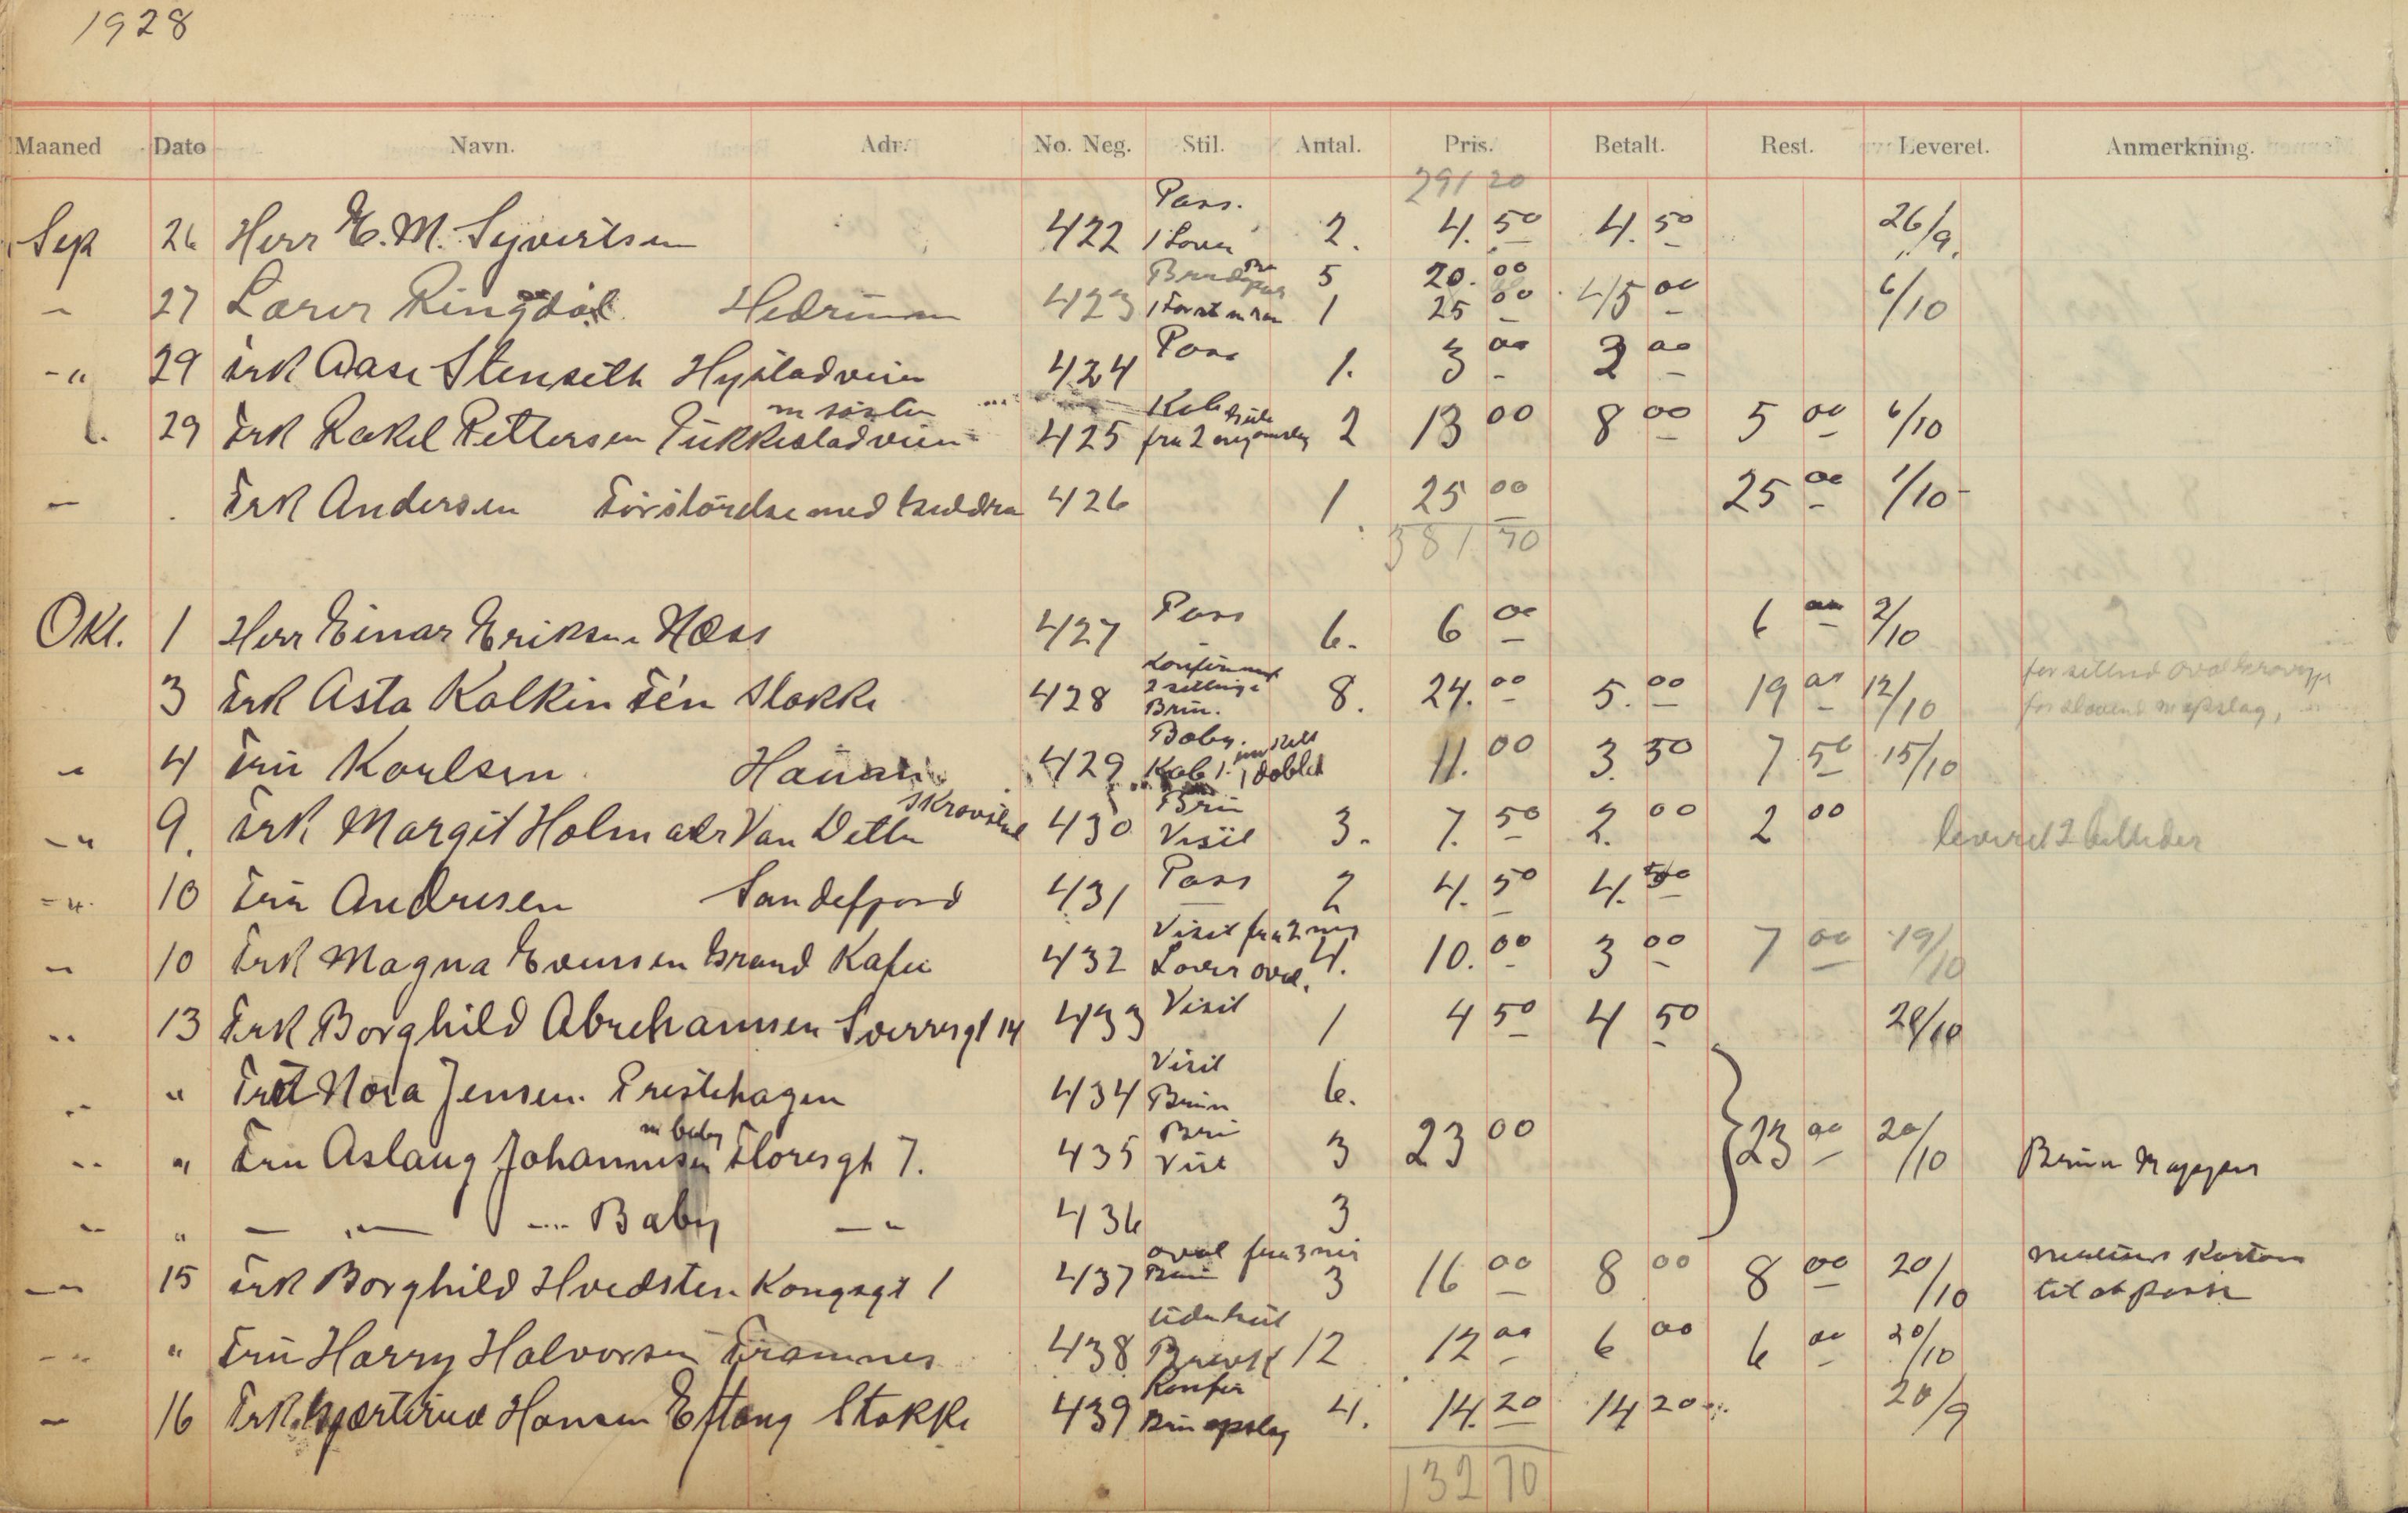 1928
Maaned Dato Navn. Adr. No. Neg. Stil. Antal. Pris. Betalt. Rest. Leveret. Anmerkning.
291 20
Pass.
Sep 26 Herr E. M. Syvertsen 422 1 2. 4. 50 4. 50 26/9.
5 20. 00
" 27 Lærer Ringdal Hedrum 423 1 25 00 45 00 6/10
Pass
" 29 Frk Aase Stenseth Hystadveien 424 1. 3 00 3 00
m søster Kab
29 Frk Rakel Pettersen Pukkestadveien 425 fra 2 neg 2 13 00 8 00 5 00 6/10
" Frk Andersen Forstørrelse med 426 1 25 00 25 00 1/10
381 70
Okt. 1 Herr Einar Eriksen Næss 427 Pass 6. 6 00 6 00 2/10
Konfirmant
3 Frk Asta Kalkin Fén Stokke 428 2 stillinge 8. 24. 00 5. 00 19 00 12/10
Brun.
Baby.
" 4 Fru Karlsen 429 Kab 1. 1 doblet 11. 00 3. 50 7 50 15/10
Brun
" 9. Frk Margit Holm adr Van Dette Skravestad 430 Visit 3. 7. 50 2. 00 2 00 leveret 2 billeder
" 10 Fru Andresen Sandefjord 431 Pass 2 4. 50 4. 50
Visit fra 2 neg
" 10 Frk Magna Evensen Grand Kafe 432 oval. 4. 10. 00 3 00 7 00 19/10
" 13 Frk Borghild Abrehamsen Sverresgt 14 433 Visit 1 4 50 4 50 20/10
Visit
" " Nora Jensen. Prestehagen 434 Brun 6.
m baby Brun
" " Fru Aslaug Johannesen Floresgt 7. 435 Visit 3 23 00 23 00 20/10 Brun
" " — — Baby — 436 3
oval fra 3 neg
" 15 Frk Borghild Hvedsten Kongsgt 1 437 Brun 3 16 00 8 00 8 00 20/10
til at passe
" " Fru Harry Halvorsen Framnes 438 Brevk 12 12 00 6 00 6 00 20/10
Konfir
" 16 Frk Hansen Eftang Stokke 439 Brun opslag 4. 14. 20 14 20 20/9
132 70